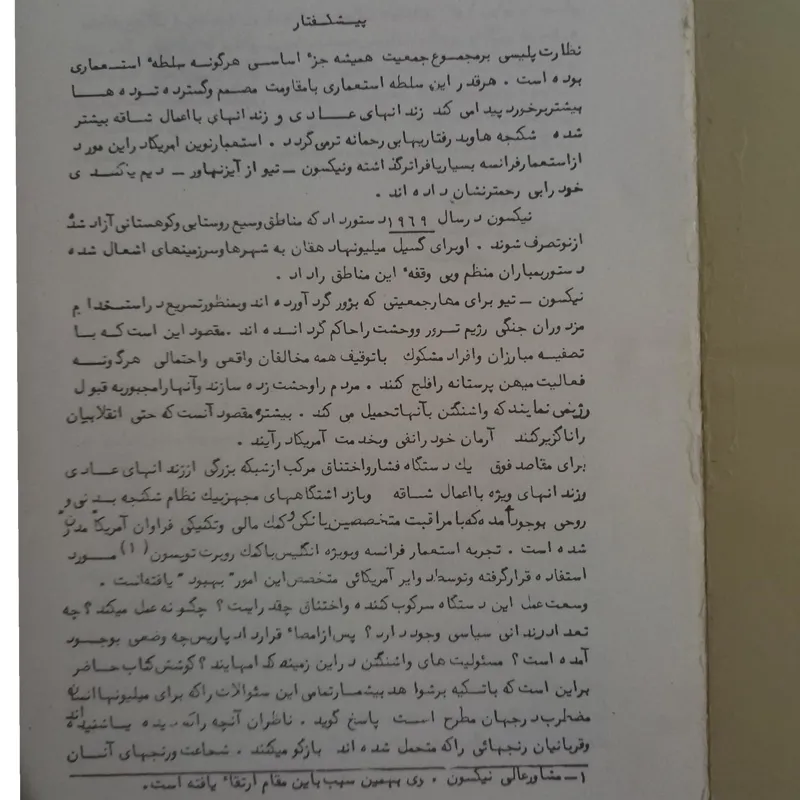 پیشگفتار
نظارت پلیسی برمجموع جمعیت همیشه جزء اساسی هرگونه سلطهء استعماری
بوده است . هرقدر این سلطه استعماری بامقاومت مصمم وگسترده توده ها
بیشتربرخورد پیدا می کند زندانهای عادی و زندانهای بااعمال شاقه بیشتر
شده شکنجه هاوبد رفتاریهابی رحمانه ترمی گردد . استعمارنوین امریکادراین مورد
ازاستعمارفرانسه بسیارپافراترگذاشته ونیکسون ــ تیو از آیزنهاور ــ دیم یاکندی
خودرابی رحمترنشان داده اند .
نیکسون درسال ۱۹۶۹ دستورداد که مناطق وسیع روستایی وکوهستانی آزاد شده
ازنوتصرف شوند . اوبرای گسیل میلیونهادهقان به شهرهاوسرزمینهای اشغال شده
دستوربمباران منظم وبی وقفهء این مناطق راداد .
نیکسون ــ تیو برای مهارجمعیتی که بزور گردآورده اند وبمنظورتسریع دراستخدام
مزدوران جنگی رژیم ترور ووحشت راحاکم گردانده اند .مقصود این است که با
تصفیه مبارزان وافراد مشکوك باتوقیف همه مخالفان واقعی واحتمالی هرگونه
فعالیت میهن پرستانه رافلج کنند . مردم راوحشت زده سازند وآنهارامجبوربه قبول
رژیمی نمایند که واشنگتن بآنهاتحمیل می کند . بیشتر مقصود آنست که حتی انقلابیان
راناگزیرکنند آرمان خودرانفی وبخدمت آمریکادرآیند .
برای مقاصد فوق یك دستگاه فشارواختناق مرکب ازشبکه بزرگی اززندانهای عادی
وزندانهای ویژه بااعمال شاقه وبازداشتگاههای مجهزبیك نظام شکنجه بدنی و
روحی بوجودآمده که بامراقبت متخصصین یانکی وکمك مالی وتکنیکی فراوان آمریکا "مدرن"
شده است . تجربه استعمار فرانسه وبویژه انگلیس باکمك روبرت تویسون (۱) مورد
استفاده قرارگرفته وتوسط دوایر آمریکائی متخصص این امور "بهبود" یافته است .
وسعت عمل این دستگاه سرکوب کننده واختناق چقدراست ؟ چگونه عمل میکند ؟ چه
تعدادزندانی سیاسی وجوددارد ؟ پس ازامضاء قرارداد پاریس چه وضعی بوجود
آمده است ؟ مسئولیت های واشنگتن دراین زمینه کدامهایند ؟ کوشش کتاب حاضر
براین است که باتکیه برشواهد بیشمارتمامی این سئوالات راکه برای میلیونها انسان
مضطرب درجهان مطرح است پاسخ گوید . ناظران آنچه راکه دیده یاشنیده اند
وقربانیان رنجهائی راکه متحمل شده اند بازگو میکنند . شجاعت ورنجهای آنسان
۱ــ مشاورعالی نیکسون . وی بهمین سبب باین مقام ارتقاء یافته است .